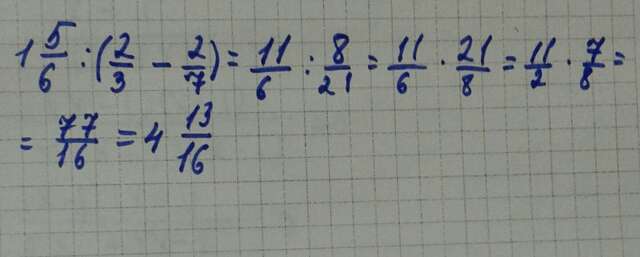 1 5/6 : (2/3 - 2/7) = 11/6 : 8/21 = 11/6 · 21/8 = 11/2 · 7/8 =
= 77/16 = 4 13/16